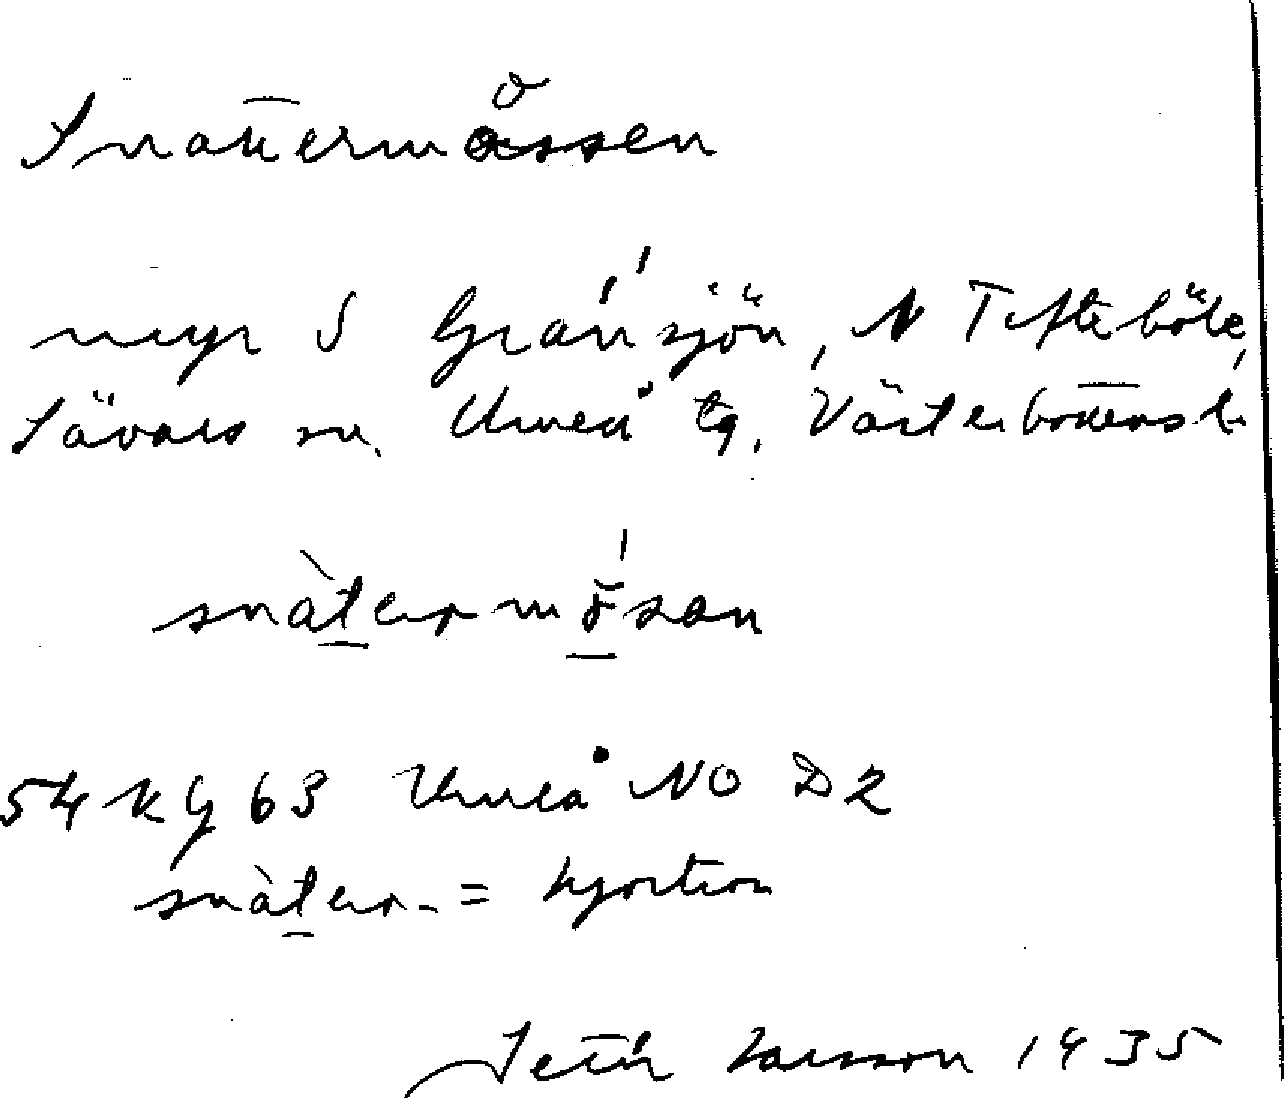 Snattermåssen
myr S Gransjön, N Tefteböle,
Sävars sn. Umeå tg. Västerbottens l.
snàtermŏsan
54 KG 63 Umeå NO D2
snàter- = hjortron
Setth Larsson 1935